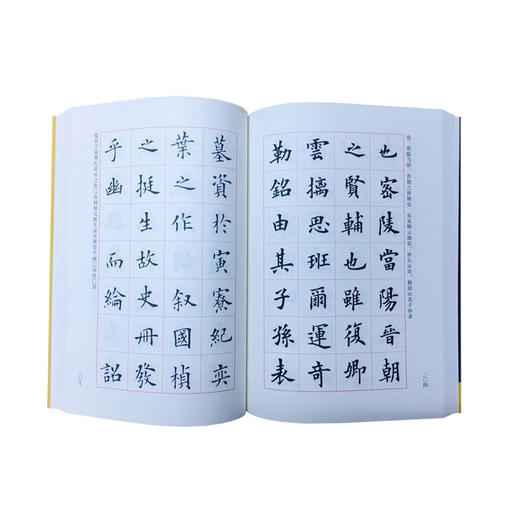 也密陵當陽晉朝
之賢輔也雖復卿
雲摛思班爾運奇
勒銘由其子孫表
二〇四
墓資於寅寮紀奕
葉之作叙國楨
之挺生故史冊發
乎幽而綸詔
二〇五